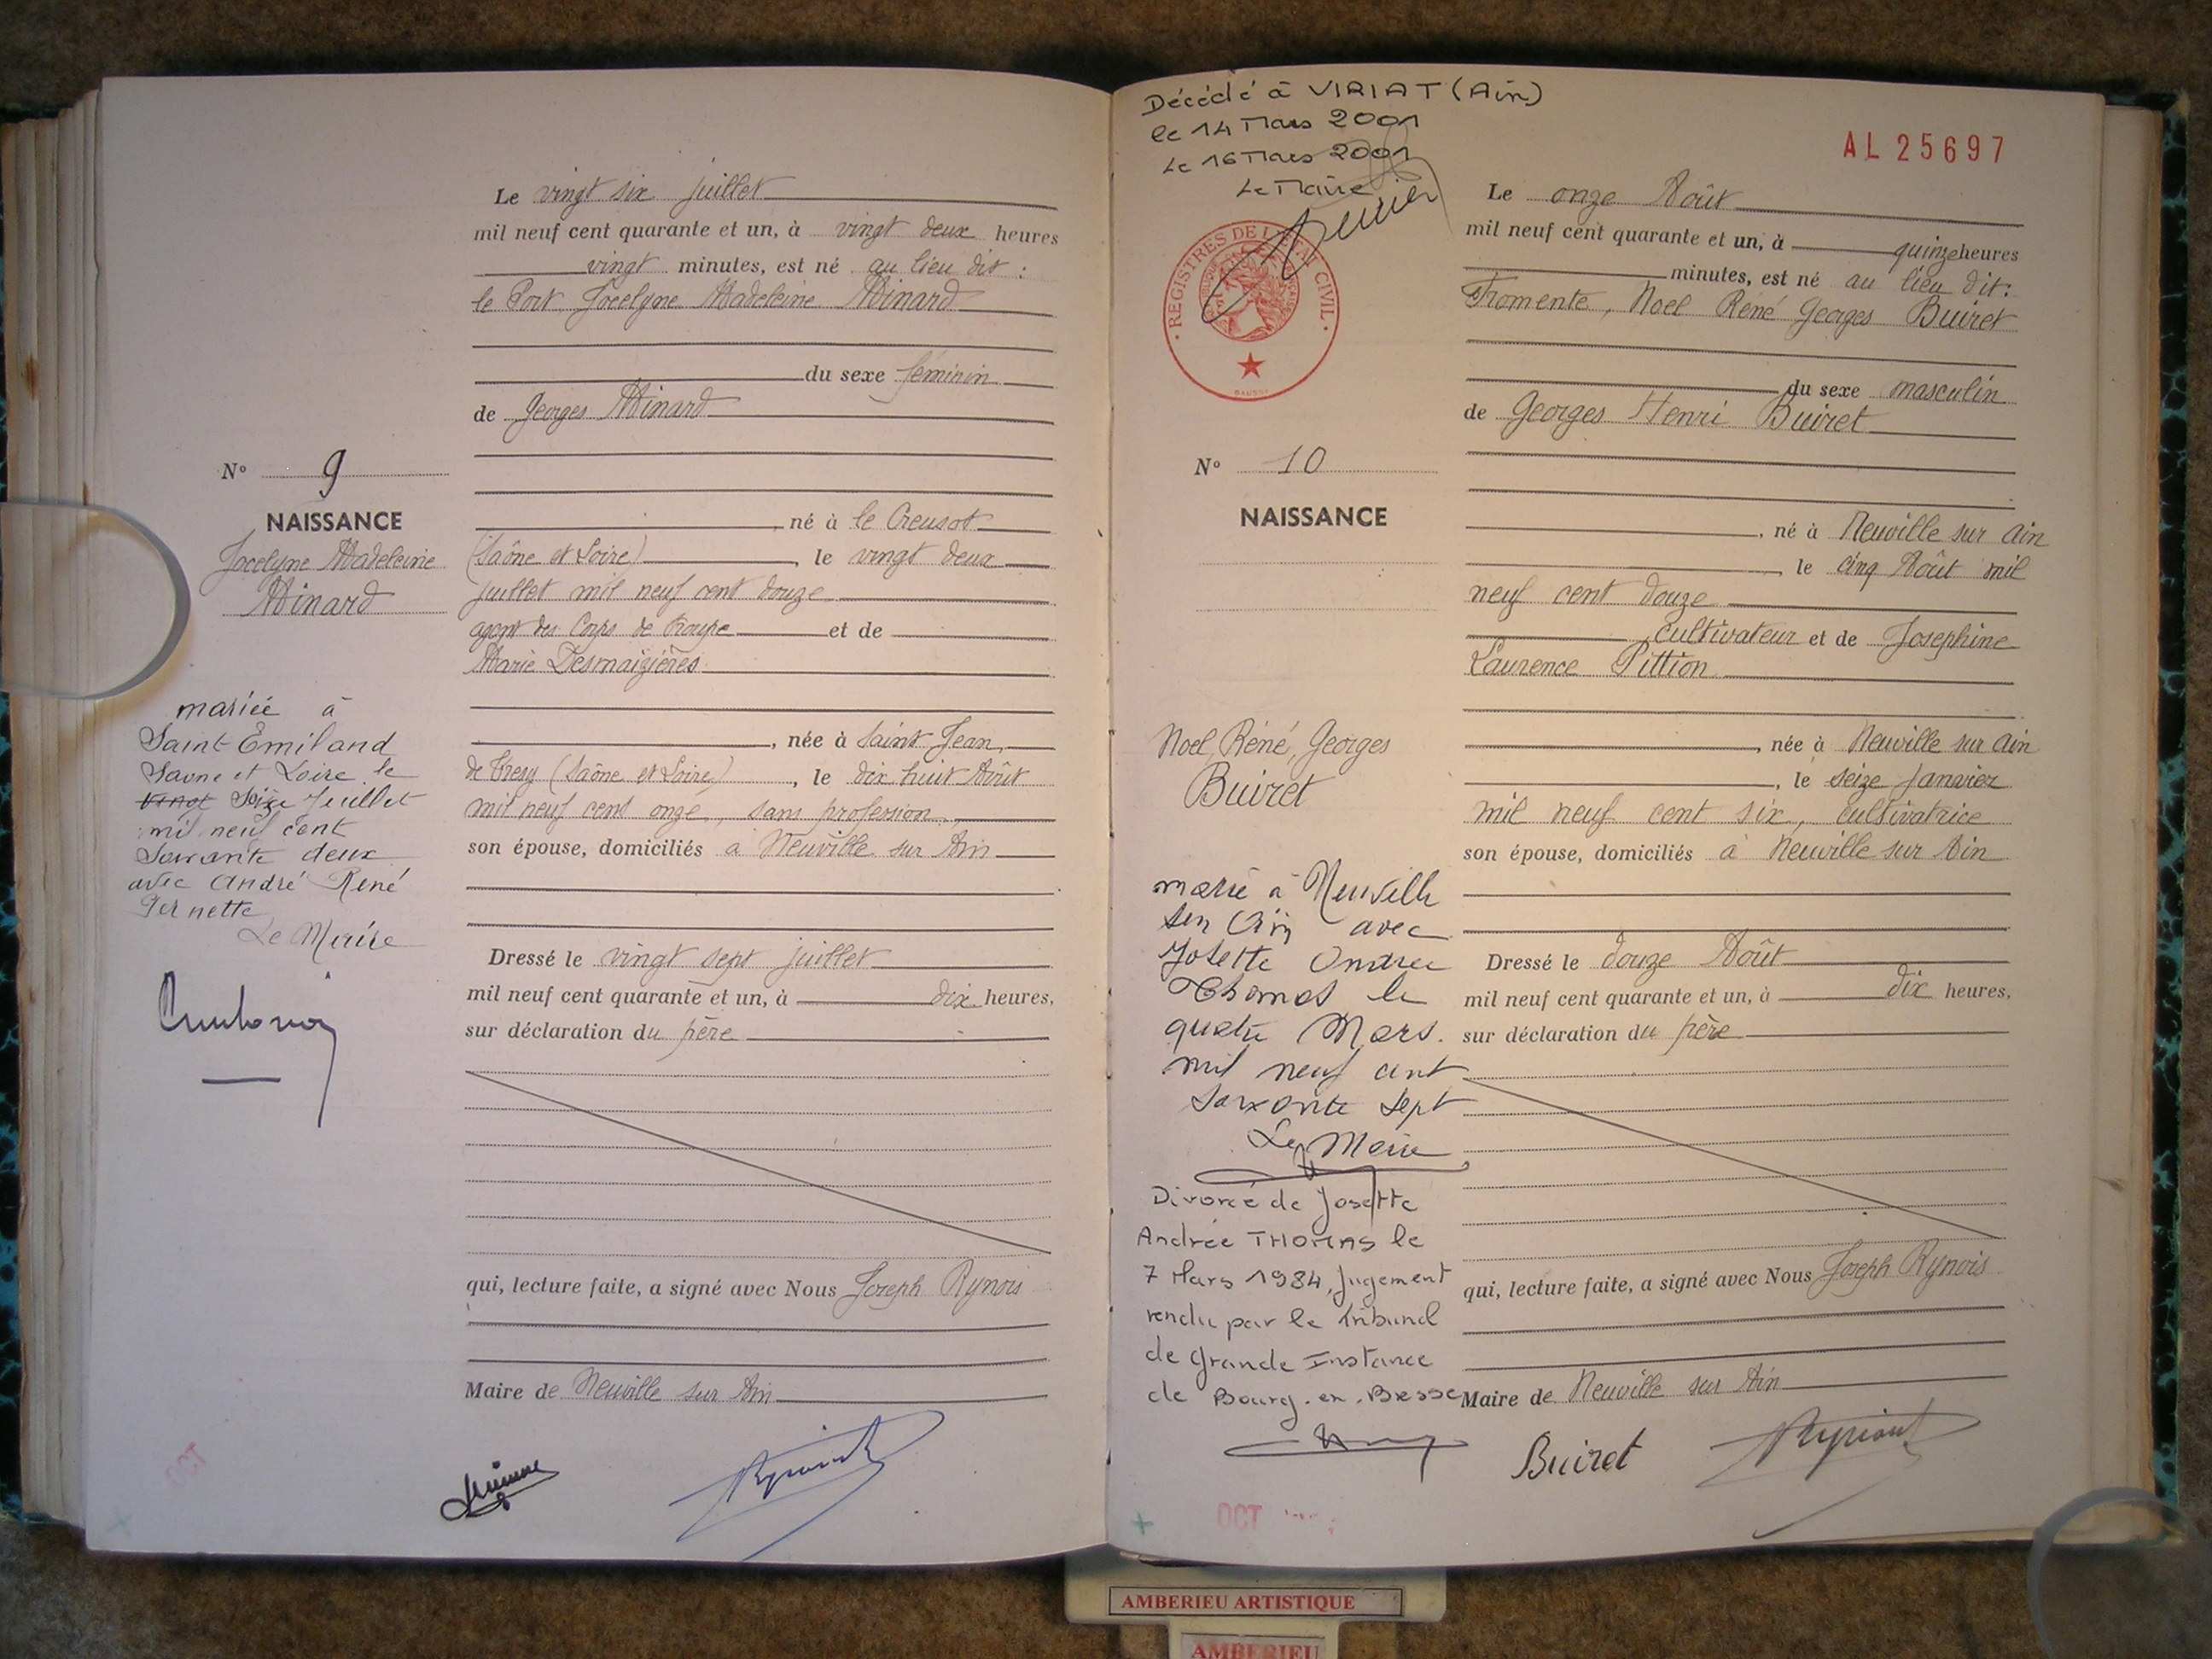 Le vingt six juillet
mil neuf cent quarante et un, à vingt deux heures
vingt minutes, est né au lieu dit :
le Port Jocelyne Madeleine Minard
du sexe féminin
de Georges Minard
N° 9
NAISSANCE
Jocelyne Madeleine
Minard
né à le Creusot
(Saône et Loire), le vingt deux
juillet mil neuf cent douze
agent des Corps de Troupe et de
Marie Desmaizières
, née à Saint Jean
de Tresy (Saône et Loire), le dix huit Août
mil neuf cent onze, sans profession
son épouse, domiciliés à Neuville sur Ain
mariée à
Saint-Emiland
Saone et Loire le
vingt Seize Juillet
mil neuf cent
soixante deux
avec André René
Pernette
Le Maire
Dressé le vingt sept juillet
mil neuf cent quarante et un, à dix heures,
sur déclaration du père
qui, lecture faite, a signé avec Nous Joseph Rynois
Maire de Neuville sur Ain
Décédé à VIRIAT (Ain)
le 14 Mars 2001
Le 16 Mars 2001
Le Maire
REGISTRES DE L'ETAT CIVIL
AL 25697
Le onze Août
mil neuf cent quarante et un, à quinze heures
minutes, est né au lieu dit:
Fromente, Noel René Georges Buiret
du sexe masculin
de Georges Henri Buiret
N° 10
NAISSANCE
, né à Neuville sur Ain
, le cinq Août mil
neuf cent douze
cultivateur et de Josephine
Laurence Pittion
, née à Neuville sur Ain
, le seize janvier
mil neuf cent six, cultivatrice
son épouse, domiciliés à Neuville sur Ain
Noel, René, Georges
Buiret
marié à Neuville
sur Ain avec
Josette Andrée
Thomas le
quatre Mars.
mil neuf cent
soixante sept
Le Maire
Divorcé de Josette
Andrée THOMAS le
7 Mars 1984, jugement
rendu par le Tribunal
de Grande Instance
de Bourg-en-Bresse
Dressé le douze Août
mil neuf cent quarante et un, à dix heures,
sur déclaration du père
qui, lecture faite, a signé avec Nous Joseph Rynois
Maire de Neuville sur Ain
Buiret
OCT
AMBERIEU ARTISTIQUE
AMBERIEU